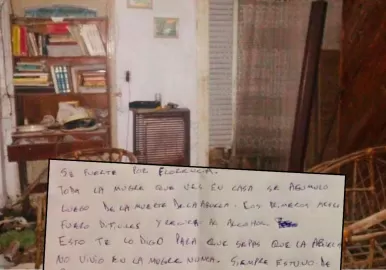 SE FUERTE POR FLORENCIA.
TODA LA MUGRE QUE VES EN CASA SE ACUMULÓ
LUEGO DE LA MUERTE DE LA ABUELA. LOS PRIMEROS AÑOS
FUERON DIFICILES Y AL ALCOHOL
ESTO TE LO DIGO PARA QUE SEPAS QUE LA ABUELA
NO VIVIÓ EN LA MUGRE NUNCA. SIEMPRE ESTUVO DE